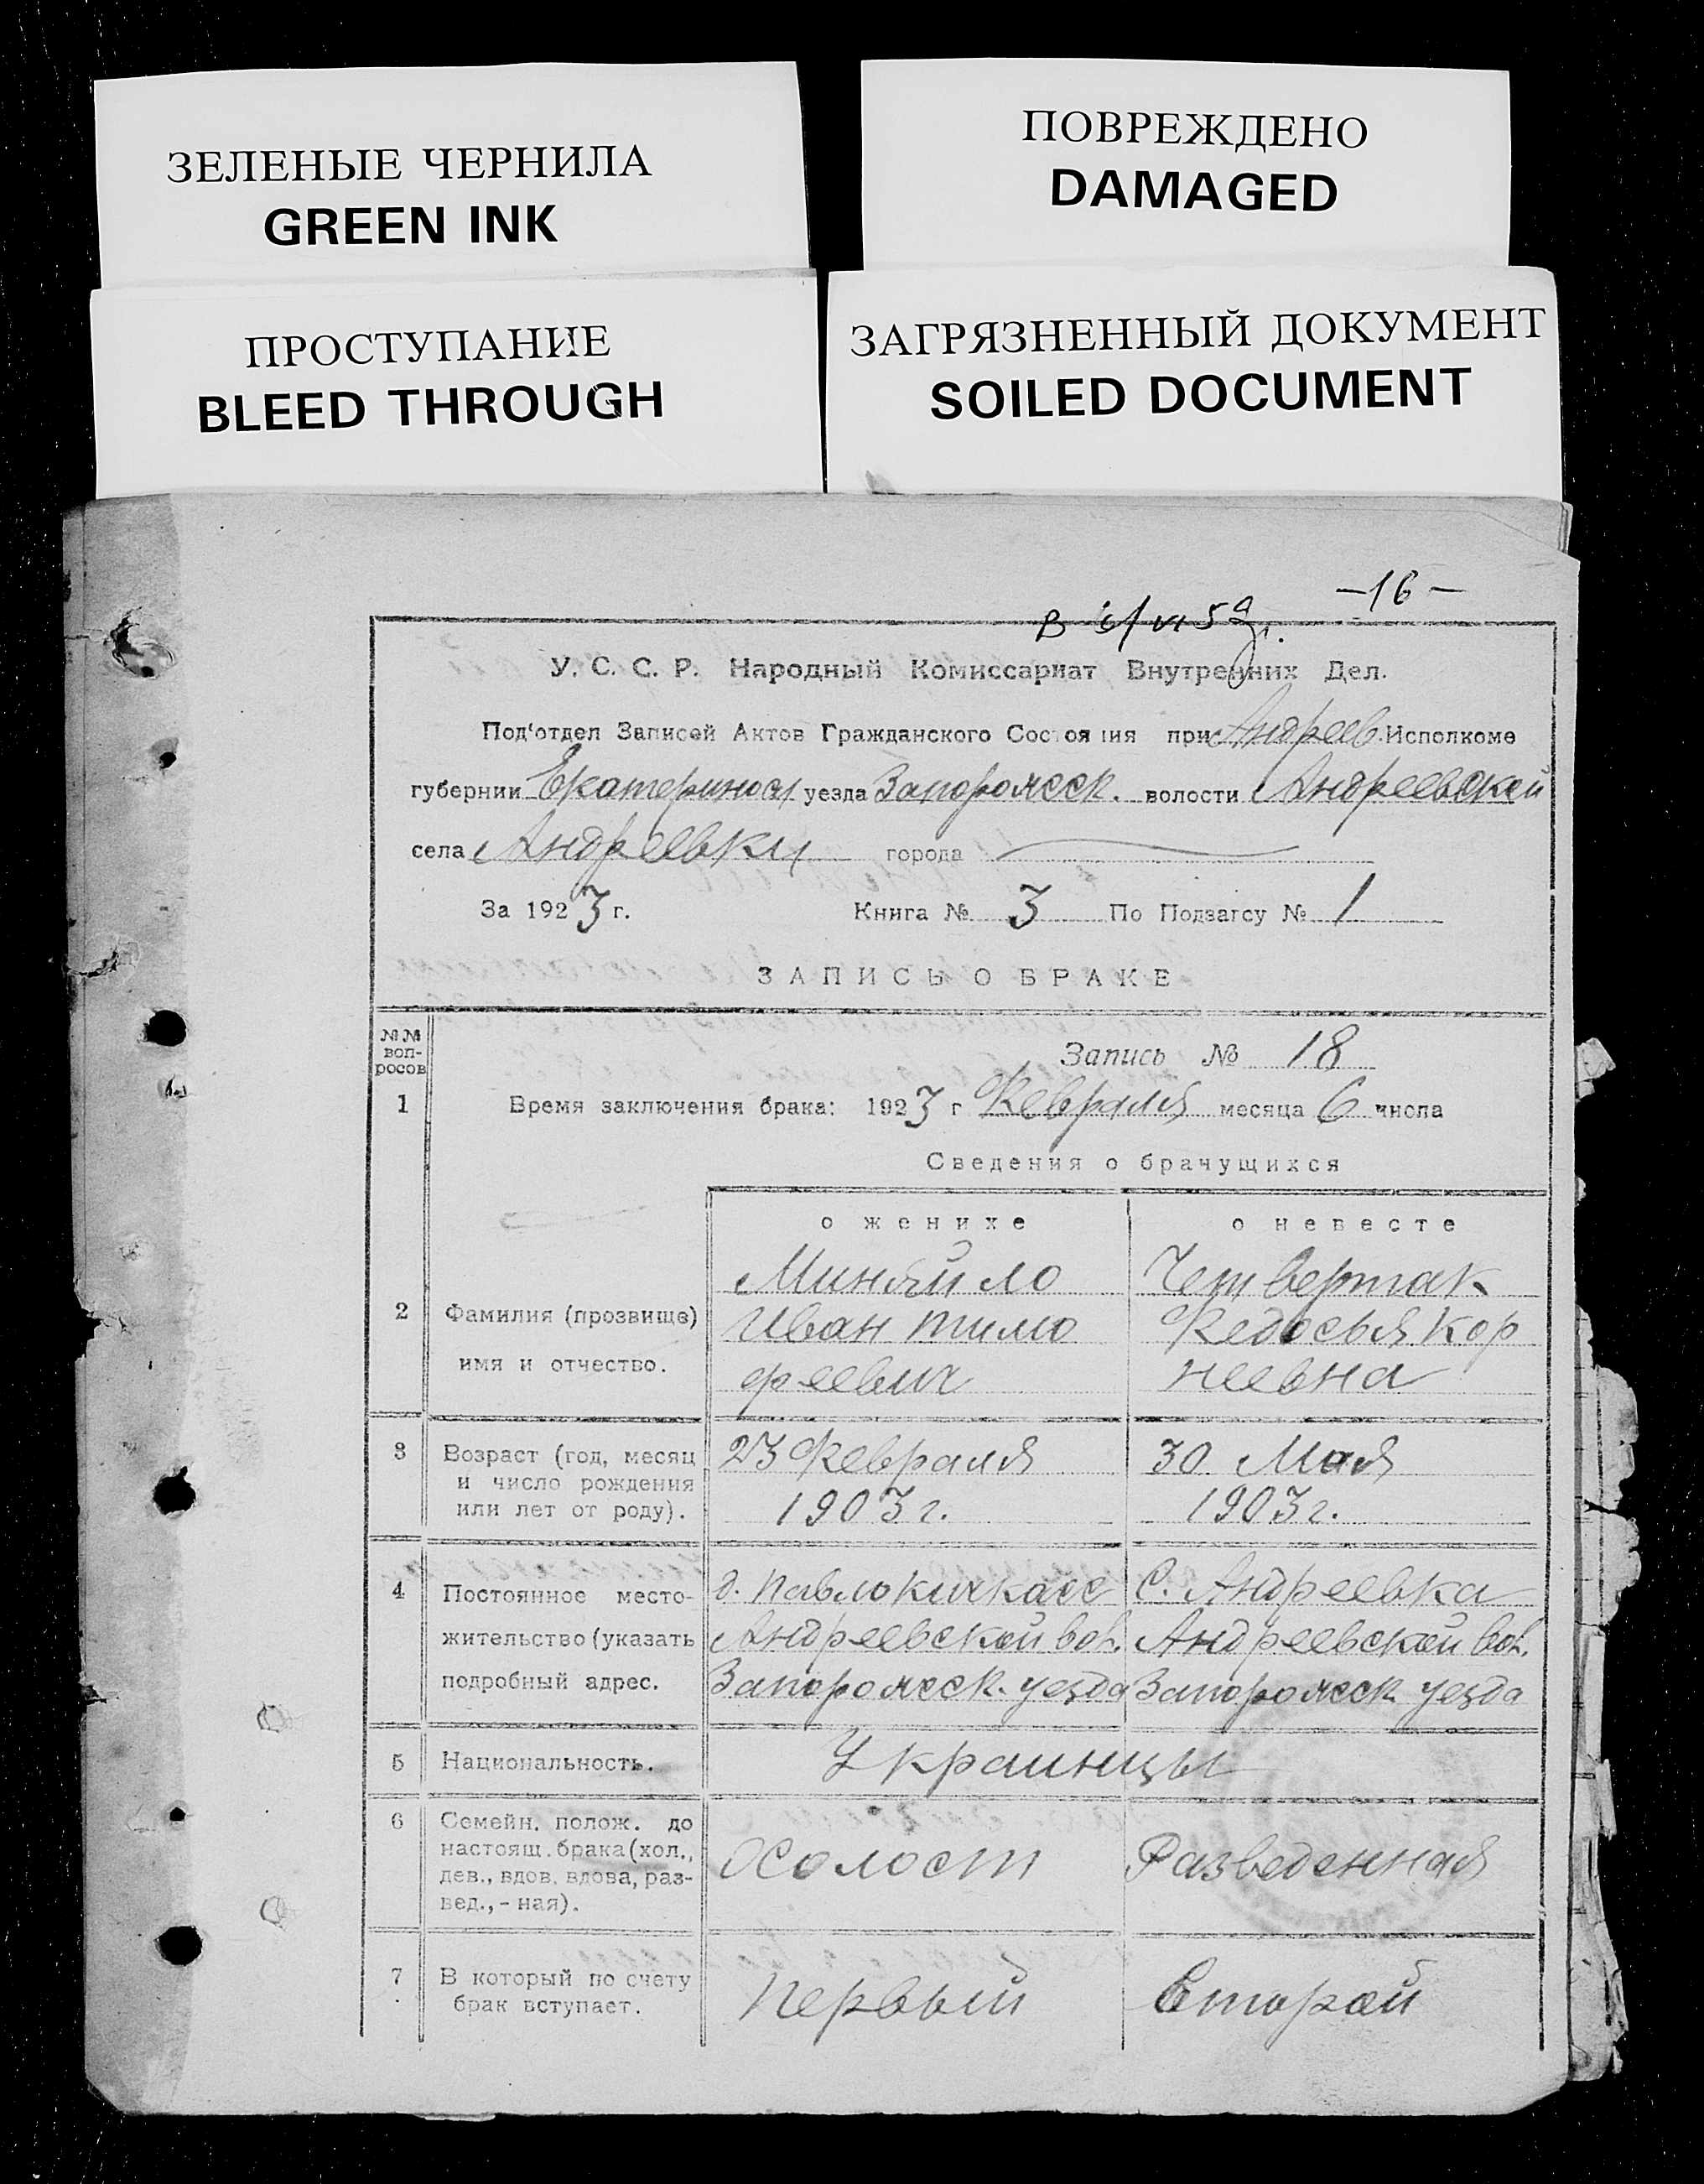 ЗЕЛЕНЫЕ ЧЕРНИЛА
GREEN INK
ПОВРЕЖДЕНО
DAMAGED
ПРОСТУПАНИЕ
BLEED THROUGH
ЗАГРЯЗНЕННЫЙ ДОКУМЕНТ
SOILED DOCUMENT
-16-
У. С. С. Р. Народный Комиссариат Внутренних Дел.
Под'отдел Записей Актов Гражданского Состояния при Андреев. Исполкоме
губернии Екатериносл уезда Запорожск. волости Андреевской
села Андреевки города
За 1923 г. Книга № 3 По Подзагсу № 1
ЗАПИСЬ О БРАКЕ
№№ воп-росов
Запись № 18
1 Время заключения брака: 1923 г Февраля месяца 6 числа
Сведения о брачущихся
о женихе о невесте
Миняйло Четвертак
2 Фамилия (прозвище) Иван Тимо Федосья Кор
имя и отчество. феевич неевна
3 Возраст (год, месяц 23 Февраля 30 Мая
и число рождения
или лет от роду). 1903 г. 1903 г.
4 Постоянное место- д. Павлокичкасс С. Андреевка
жительство (указать Андреевской вол. Андреевской вол.
подробный адрес. Запорожск. уезда Запорожск уезда
5 Национальность. Украинцы
6 Семейн. полож. до
настоящ. брака (хол., Холост Разведенная
дев., вдов, вдова, раз-
вед.,-ная).
7 В который по счету Первый Второй
брак вступает.